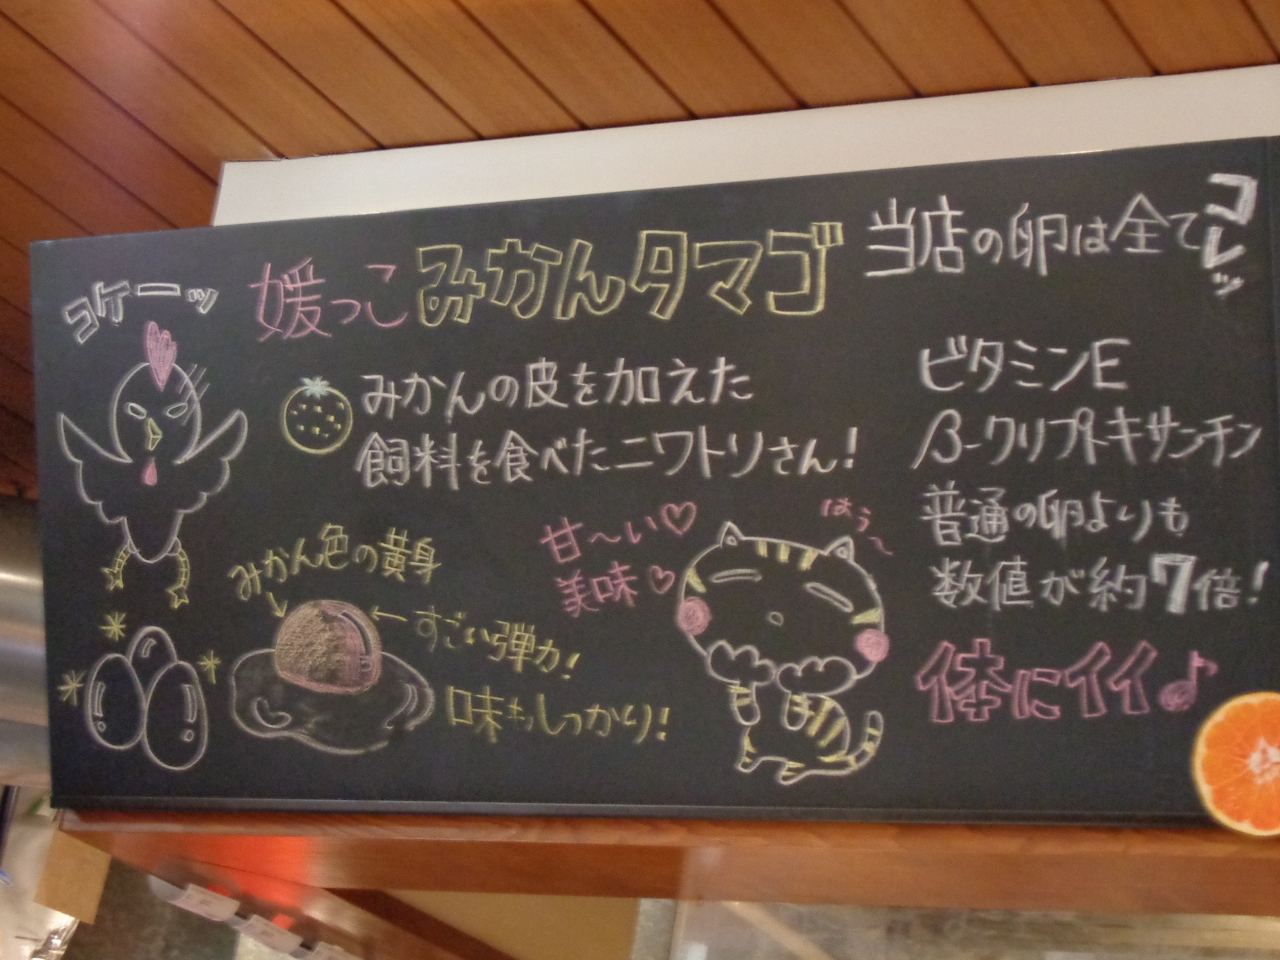 コケーッ
媛っこみかんタマゴ
みかんの皮を加えた
飼料を食べたニワトリさん!
みかん色の黄身
すごい弾力!
味もしっかり!
甘〜い♡
美味♡
はぅ〜
当店の卵は全てコレッ
ビタミンE
β-クリプトキサンチン
普通の卵よりも
数値が約7倍!
体にイイ♪